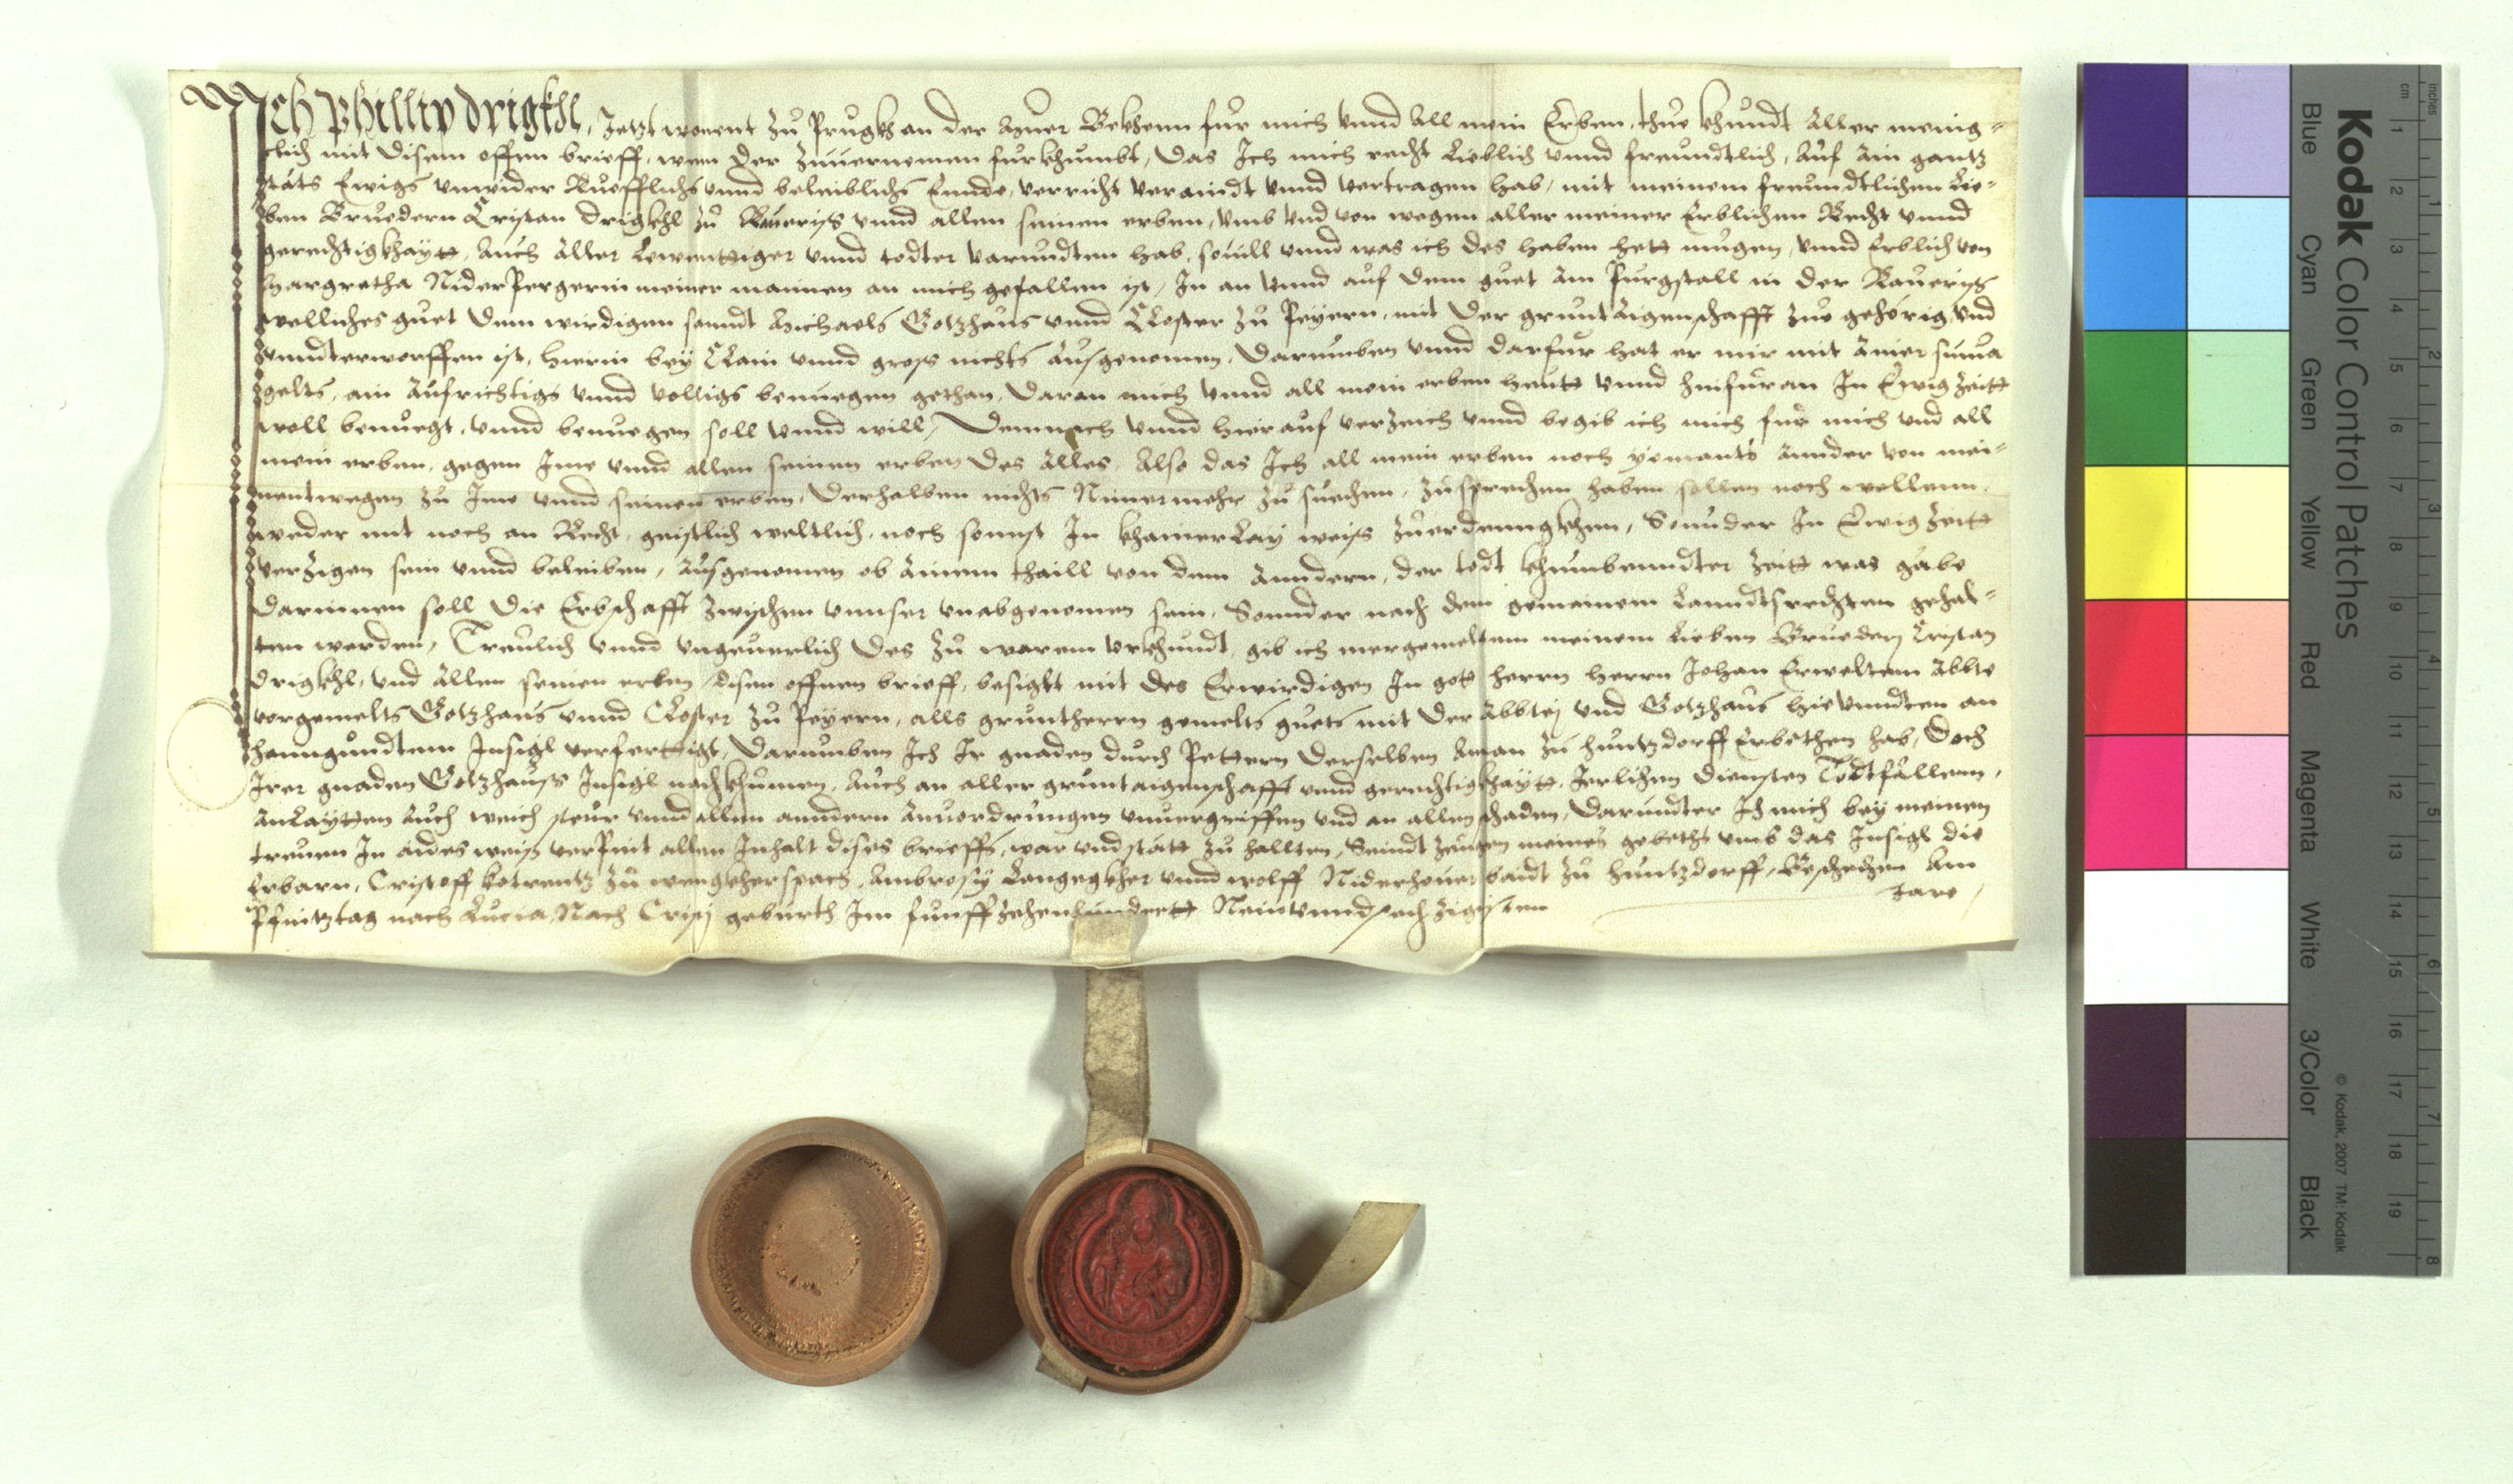 Ich Phillip Drigkhl, Jetzt wonent zů Prugkh an der Muer Bekhenn für mich vnnd All mein Erben, thue khundt Aller menig-
clich mit disem offen brieff, wem der zuuernemen fürkhumbt, Das Ich mich recht Lieblich vnnd freundtlich, Auf Ain gantz
stäts Ewigs vnwider Ruefflichs vnnd beleiblichs Ennde, verricht veraindt vnnd vertragen hab, mit meinem freundtlichen Lie-
ben Bruedern Cristan Drigkhl zů Raueriss vnnd allen seinen erben, vmb vnd von wegen aller meiner Erblichen Recht vnnd
gerechtigkhaytt, Auch Aller Lewenttiger vnnd todter varundten hab, souill vnnd was ich des haben hett mügen, vnnd Erblich von
Margretha Niderpergerin meiner maimen an mich gefallen ist, In an vnnd auf dem guet Am purgstall in der Raueriss
welliches guet dem wirdigen sanndt Michaels Gotzhaus vnnd Closter zů Peyern, mit der grunt Aigenschafft zue gehörig vnd
vnndterworffen ist, hierin bey Clain vnnd gross nichts Ausgenomen, Darumben vnnd darfür hat er mir mit Ainer suma
gelts, ain Aufrichtigs vnnd volligs benuegen gethan, Daran mich vnnd all mein erben heutt vnnd hinfüran In Ewig Zeitt
woll benuegt, vnnd benuegen soll vnnd will, Demnach vnnd hierauf verzeich vnnd begib ich mich für mich vnd all
mein erben, gegen Ime vnnd allen seinen erben des Alles, Also das Ich all mein erben noch yemants Annder von mei-
nentwegen zů Ime vnnd seinen erben, Derhalben nichts Nimermehr zů suechen, zůsprechen haben sollen noch wellenn,
weder mit noch an Recht, geistlich weltlich, noch sonnst In khainerlay weiss zůerdenngkhen, Sonnder In Ewig Zeitt
verzigen sein vnnd beleiben, Ausgenomen ob Ainem thaill von dem Anndern, der todt khumbenndter Zeitt was gäbe
Darinnen soll die Erbschafft zwischen vnnser vnabgenomen sein, Sonnder nach dem gemainem Lanndtsrechten gehal-
ten werden, Treulich vnnd vngeuerlich Des zů warem vrkhundt, gib ich mergemeltem meinem Lieben Brueder Cristan
Drigkhl, vnd Allen seinen erben, disen offnen brieff, besiglt mit des Erwirdigen In got herrn herrn Johan Erweltem Abbte
vorgemelts Gotzhaus vnnd Closter zů Peyern, alls gruntherrn gemelts guets mit der Abbtej vnd Gotzhaus hievnndten an
hanngundtem Insigl verferttigt, Darumben Ich Ir gnaden durch Pettern derselben Aman zů huntzdorff Erbethen hab, Doch
Irer gnaden Gotzhauss Insigl nachkhumen, Auch an aller gruntaigenschafft vnnd gerechtigkhaytt, Jerlichen diensten Todtfällenn,
Anlaytten Auch weich steur vnnd allen anndern Anuordrungen vnuergriffen vnd an allen schaden, Darundter Ich mich bey meinen
treuen In aides weiß verpint allen Inhalt dises brieffs, war vnd stätt zů hallten, Seindt zeugen meines gebeths vmb das Insigl die
Erbarn, Cristoff Kotrentz zů wengkherspach, Ambrosy Langegkher vnnd wolff Niderhouer baidt zů huntzdorff, Beschechen Am
Pfintztag nach Lucia, Nach Cristj geburth Im funffzehenhundertt Neünvnndsechzigisten Jare
Kodak Color Control Patches
Blue Cyan Green Yellow Red Magenta White 3/Color Black
© Kodak, 2007 TM: Kodak
cm 1 2 3 4 5 6 7 8 9 10 11 12 13 14 15 16 17 18 19
inches 1 2 3 4 5 6 7 8